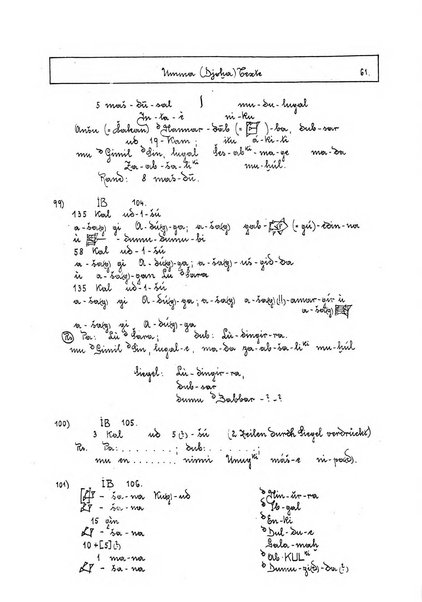 Umma (Djoḫa) Texte 61.
5 maš-dū-sal mu-du-lugal
In-ta-è ni-ku
Anšu (= Šakan) Nannar-dūb (= )-ba, dub-sar
ud 19-kam; itu á-ki-ti
mu ᵈGimil ᵈSin, lugal Šes-abᵏⁱ-ma-ge ma-da
Za-ab-ša-liᵏⁱ mu-ḫul.
Rand: 8 maš-dū.
99) IB 104.
135 Kal ud-1-šú
a-šag gi A-dúg-ga; a-šag gab- (= gú)-edin-na
ù - dumu-dumu-bi
58 Kal ud-1-šú
a-šag gi A-dúg-ga; a-šag-uš-gíd-da
ù a-šag-gan Lù Šara
135 Kal ud-1-šú
a-šag gi A-dúg-ga; a-šag-a-šag(!!)-amar-gír ù
a-šag
a-šag gi A-dúg-ga
Rs Pa: Lù ᵈŠara; dub: Lù-dingir-ra,
mu ᵈGimil ᵈSin, lugal-e, ma-da za-ab-ša-liᵏⁱ mu-ḫúl
Siegel: Lù-dingir-ra,
dub-sar
dumu ᵈBabbar-?-?
100) IB 105.
3 Kal ud 5(?)-šú (2 Zeilen durch Siegel verdrückt)
Rs. Pa: . . . . . ; dub: . . . . . . ;
mu en . . . . . ninni Unugᵏⁱ máš-e ni-pad.
101) IB 106.
- ša-na Kug-ud ᵈNin-úr-ra
- ša-na ᵈIb-gal
15 gín ᵈEn-ki
- ša-na ᵈDul-du-e
10+[5](?) Gala-maḫ
1 ma-na ᵈAb-KULᵏⁱ
- ša-na ᵈDumu-zid-da(?)